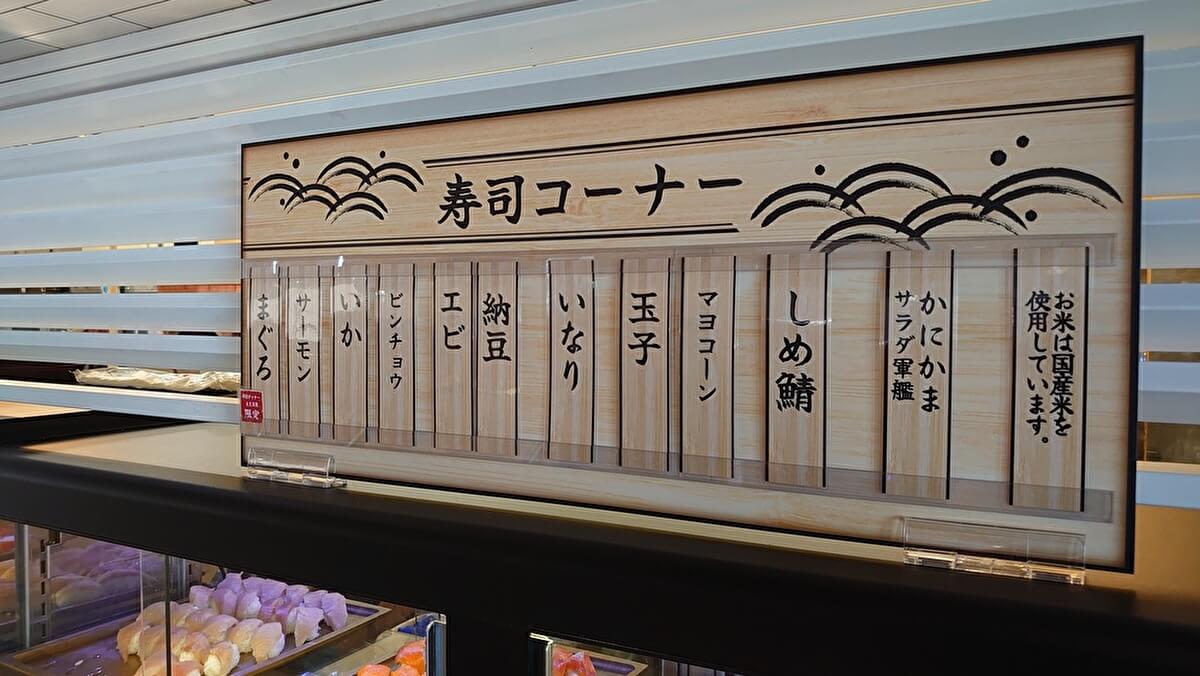 寿司コーナー
まぐろ
サーモン
いか
ビンチョウ
エビ
納豆
いなり
玉子
マヨコーン
しめ鯖
かにかま
サラダ軍艦
お米は国産米を
使用しています。
限定